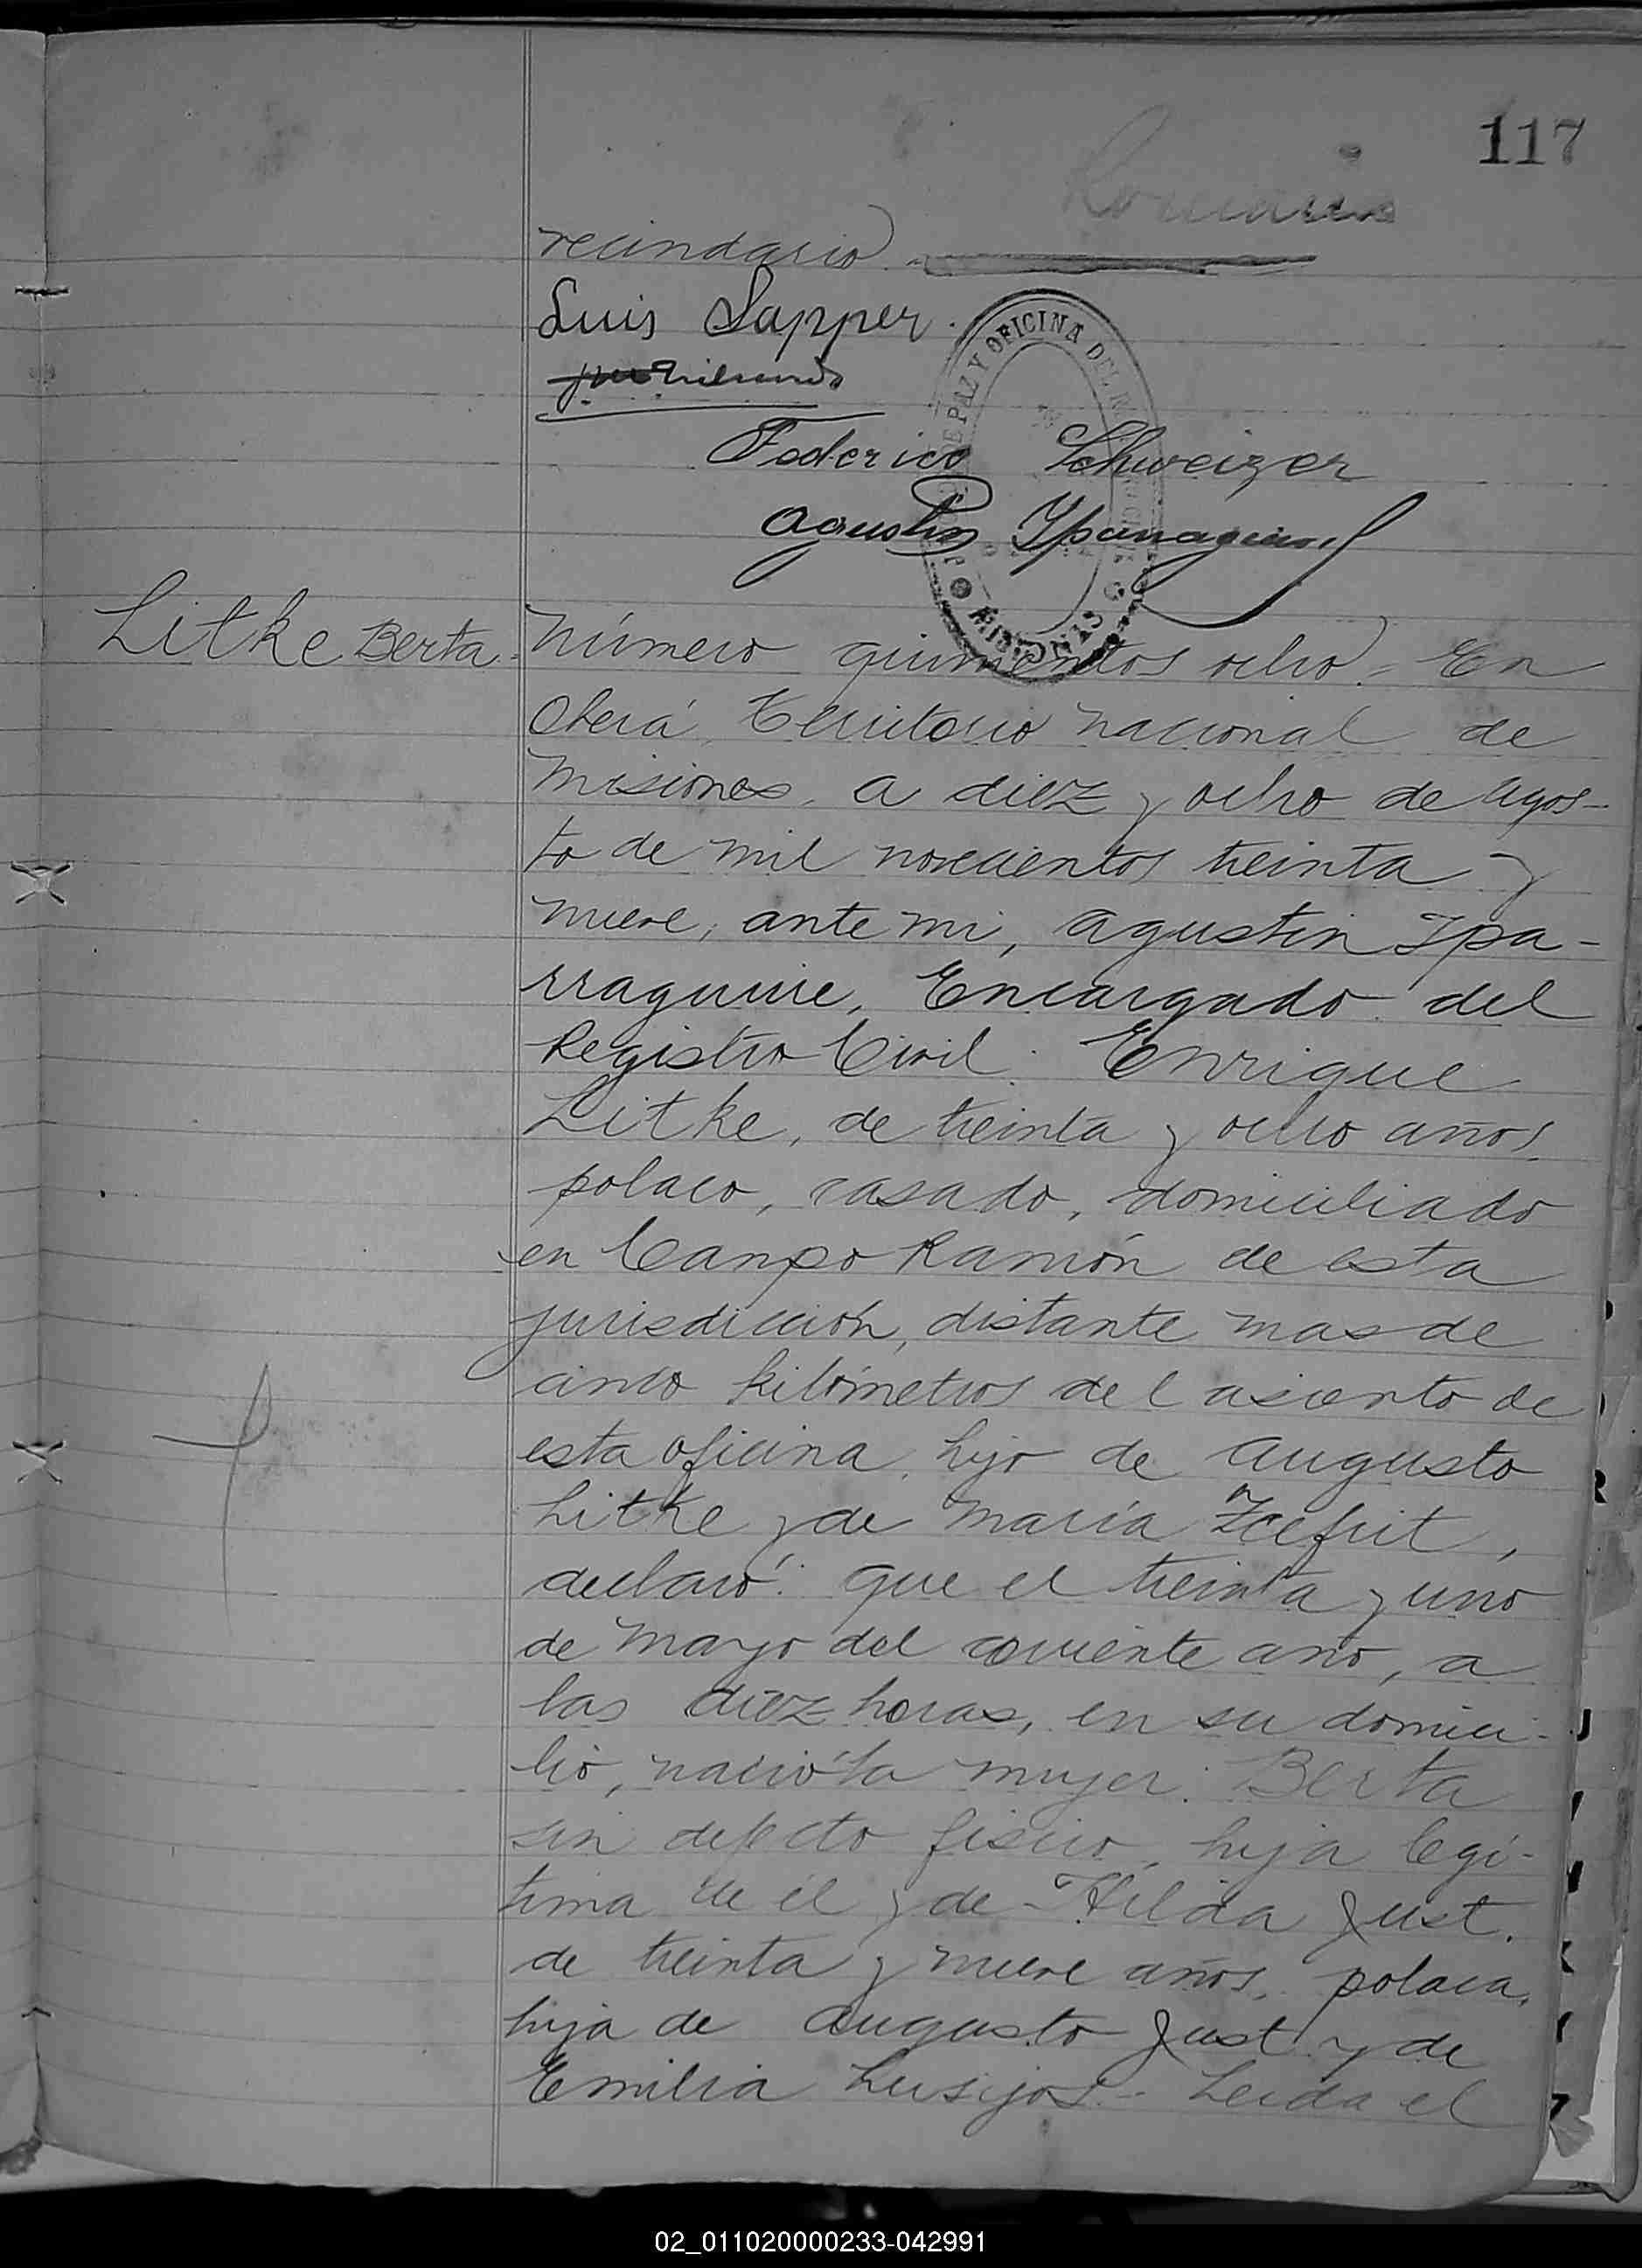 117
vecindario.
Luis Sapper.
Federico Schweizer
Agustin Yparraguirre
JUZGADO DE PAZ Y OFICINA DEL
MISIONES
Litke Berta.
Número quinientos ocho.= En
Oberá, Territorio nacional de
Misiones, a diez y ocho de Agos-
to de mil novecientos treinta y
nueve, ante mi, Agustin Ypa-
rraguirre, Encargado del
Registro Civil: Enrique
Litke, de treinta y ocho años,
polaco, casado, domiciliado
en Campo Ramón de esta
jurisdicción, distante mas de
cinco kilómetros del asiento de
esta oficina, hijo de Augusto
Litke y de María Zcefrit,
declaró: que el treinta y uno
de Mayo del corriente año, a
las diez horas, en su domici-
lio, nació la mujer: Berta
sin defecto fisico, hija legí-
tima de él y de Hilda Just,
de treinta y nueve años, polaca,
hija de Augusto Just y de
Emilia Lusijos.- Leida el
02_011020000233-042991